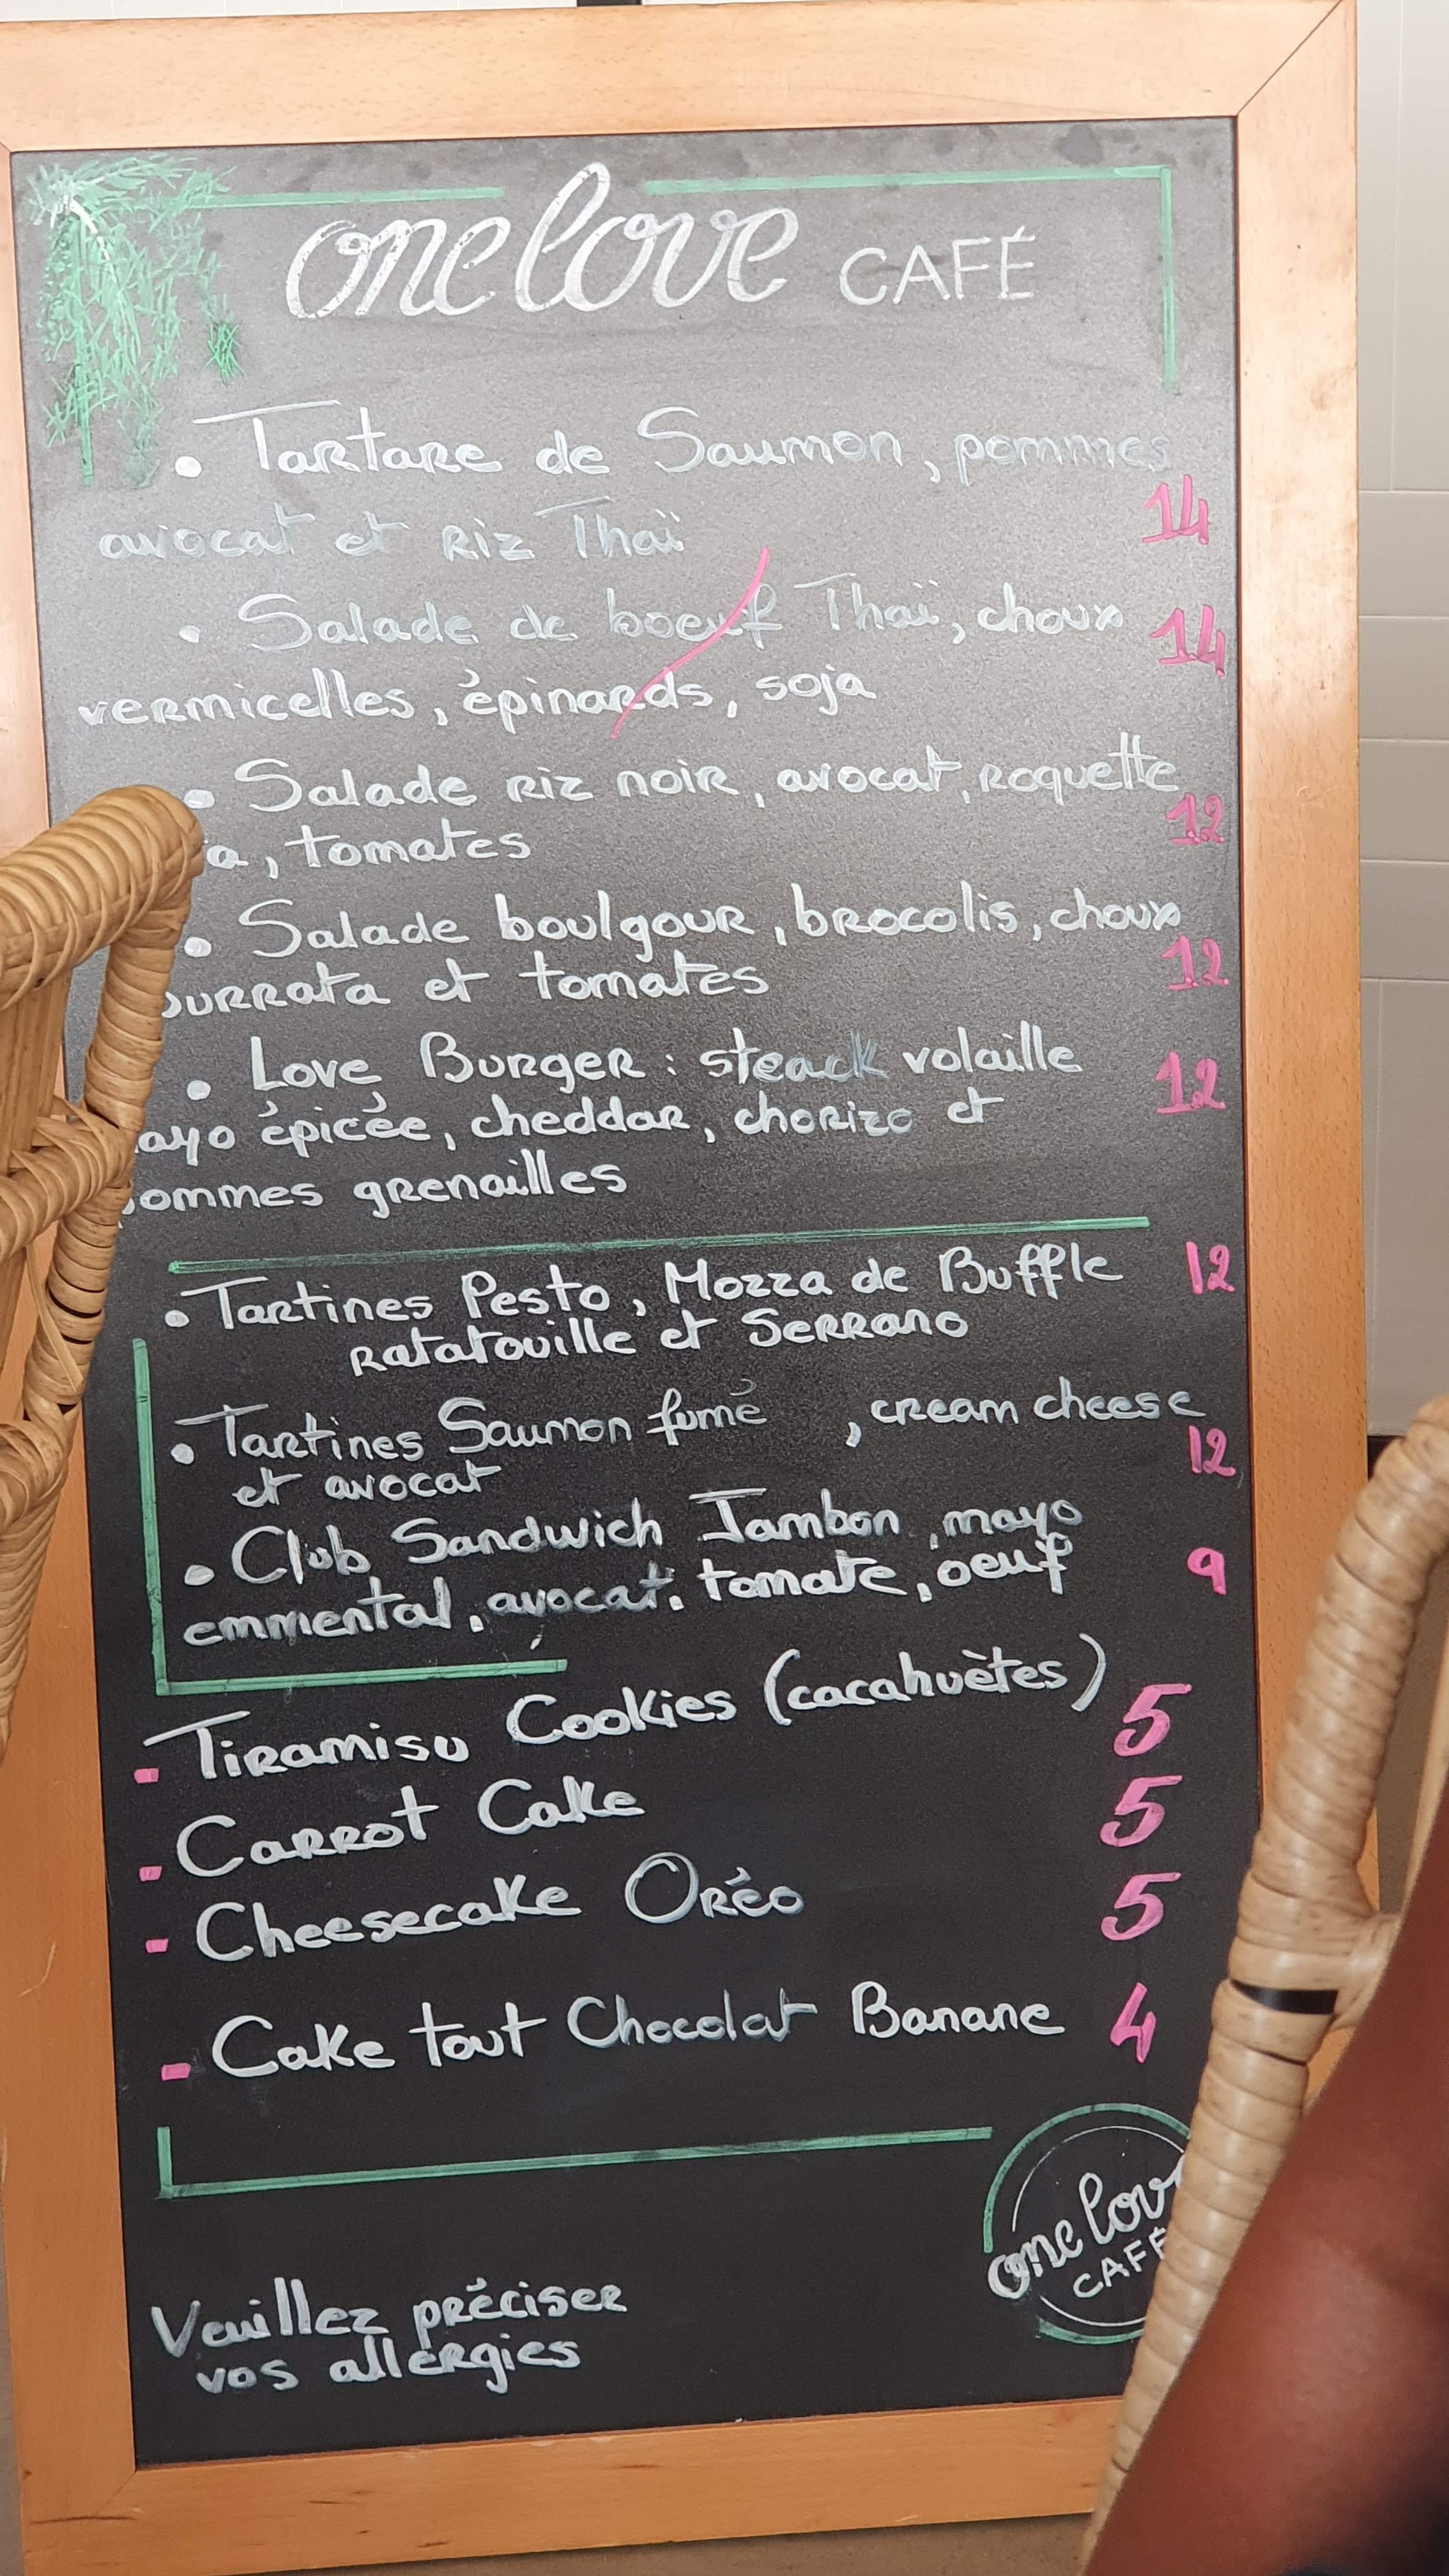 one love CAFÉ
• Tartare de Saumon, pommes
avocat et riz Thaï 14
• Salade de boeuf Thaï, choux 14
vermicelles, épinards, soja
• Salade riz noir, avocat, roquette
a, tomates 12
• Salade boulgour, brocolis, choux
burrata et tomates 12
• Love Burger : steack volaille 12
mayo épicée, cheddar, chorizo et
pommes grenailles
• Tartines Pesto, Mozza de Buffle 12
ratatouille et Serrano
• Tartines Saumon fumé , cream cheese
et avocat 12
• Club Sandwich Jambon, mayo
emmental, avocat, tomate, oeuf 9
- Tiramisu Cookies (cacahuètes) 5
- Carrot Cake 5
- Cheesecake Oréo 5
- Cake tout Chocolat Banane 4
one love
CAFÉ
Veuillez préciser
vos allergies